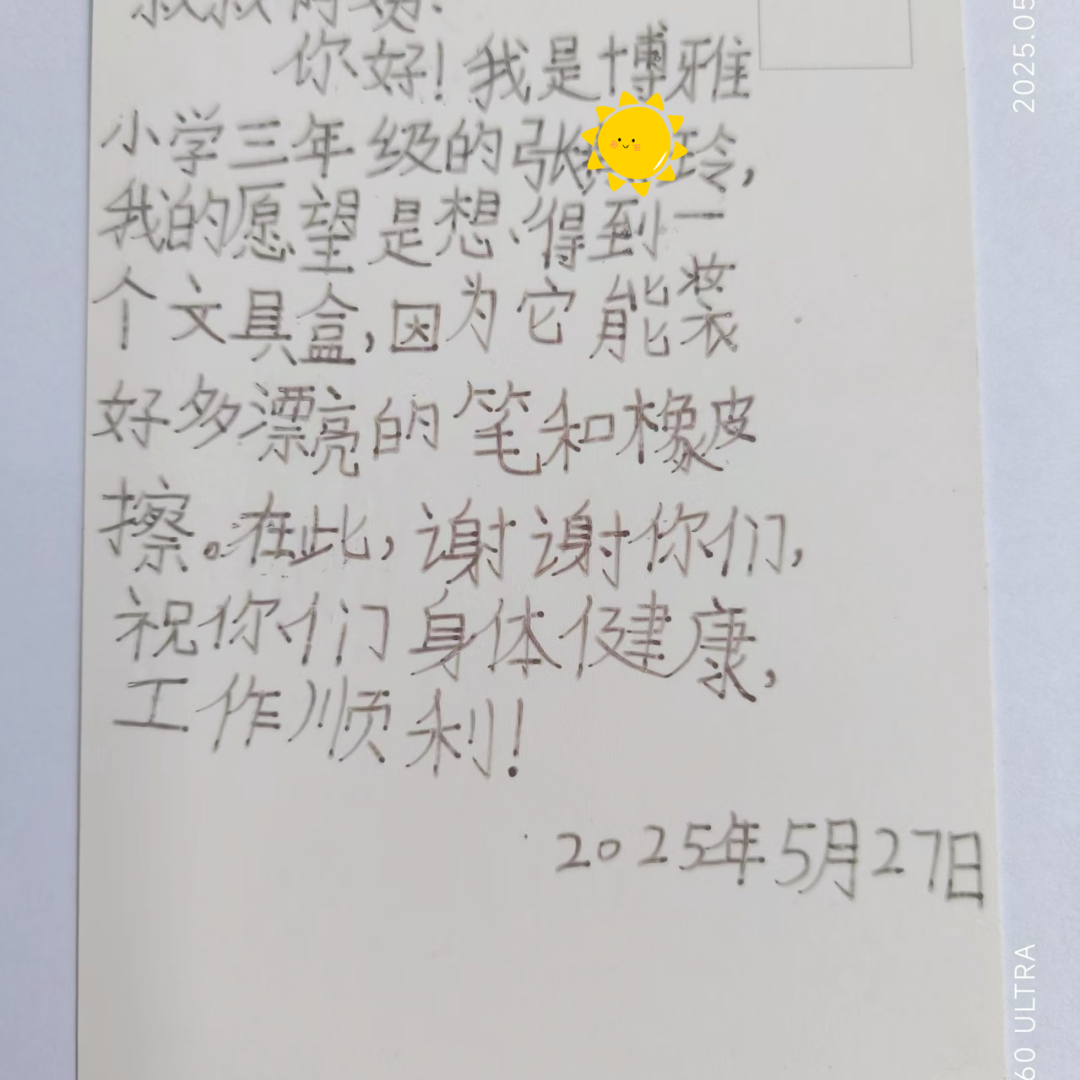 你好！我是博雅
小学三年级的张玲，
我的愿望是想、得到一
个文具盒，因为它能装
好多漂亮的笔和橡皮
擦。在此，谢谢你们，
祝你们身体健康，
工作顺利！
2025年5月27日
2025.05
60 ULTRA